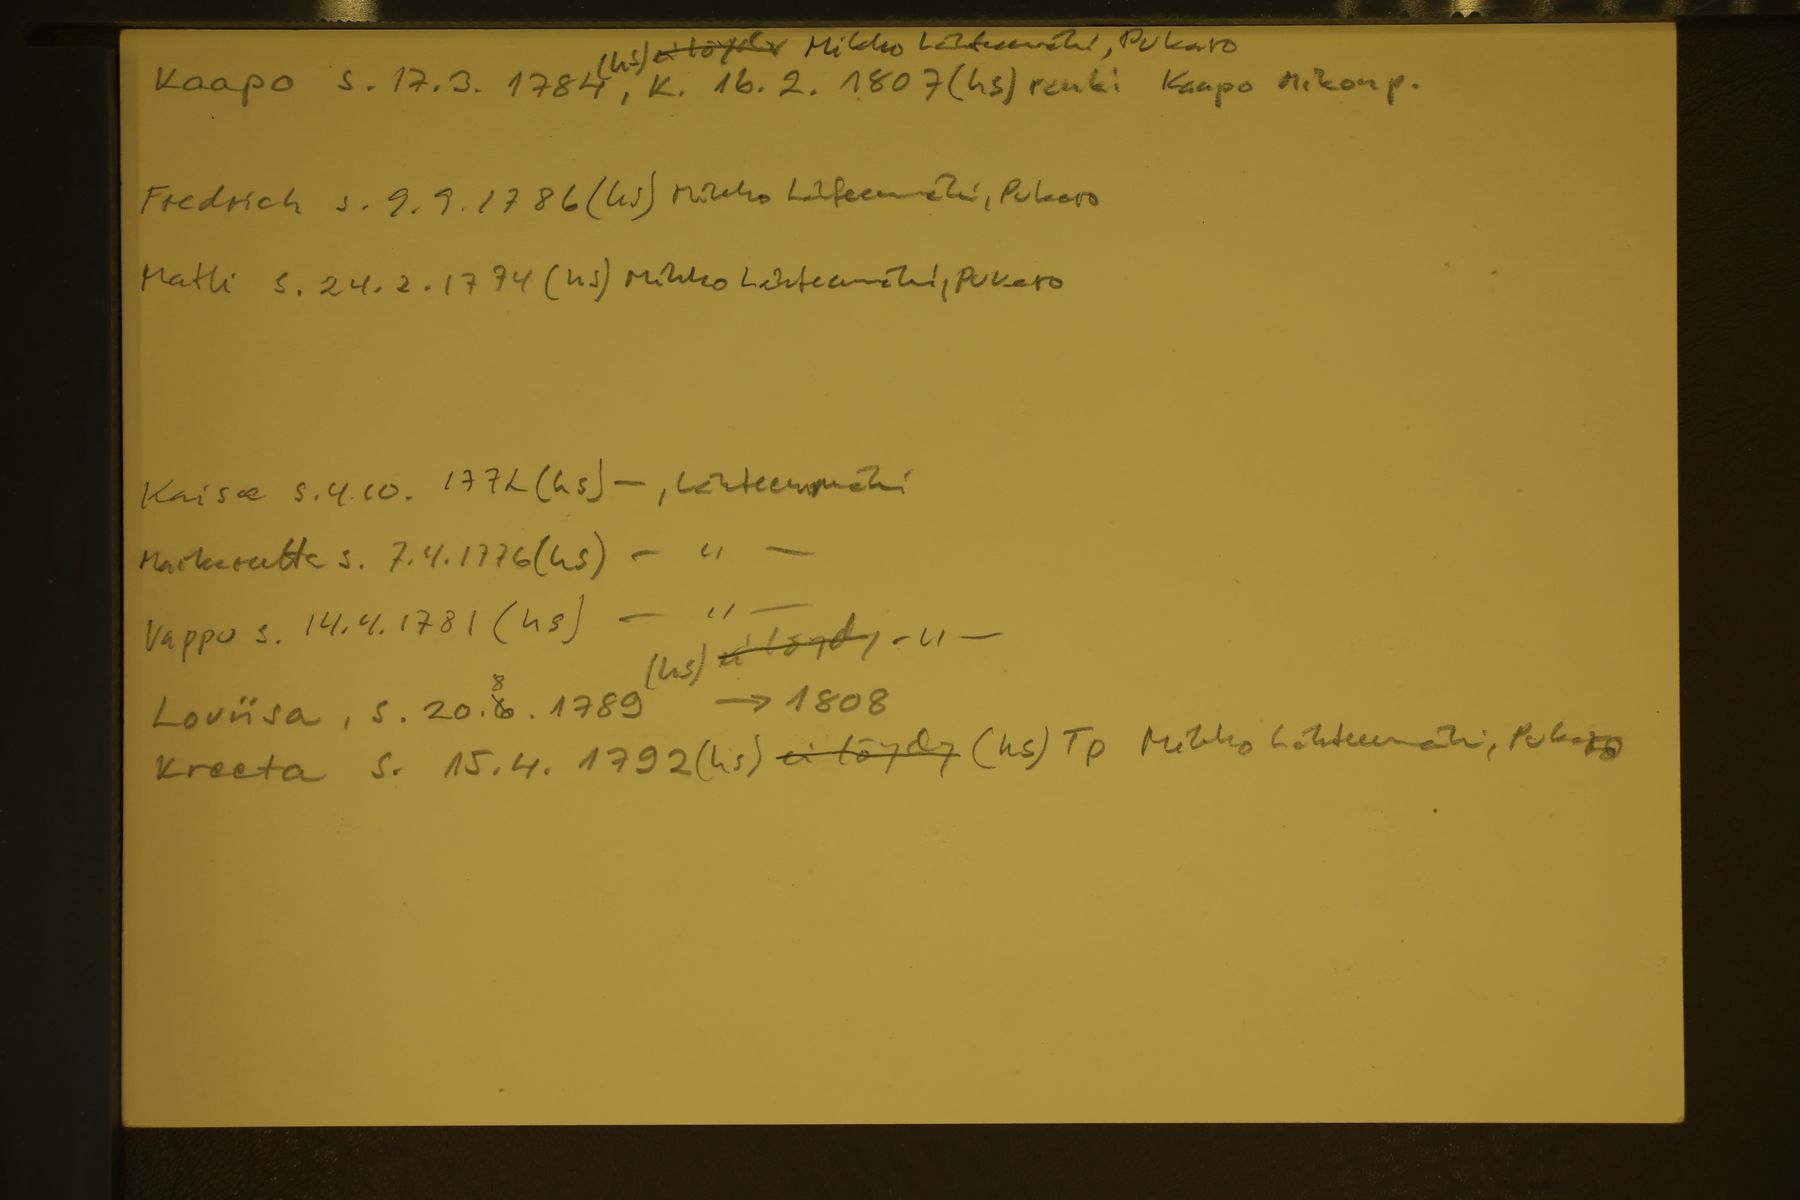 (hs) ei löydy Mikko Lähteenmäki, Pukaro
Kaapo s. 17.3. 1784, K. 16.2. 1807 (hs) renki Kaapo Mikonp.
Fredrich s. 9.9.1786 (hs) Mikko Lähteenmäki, Pukaro
Matti s. 24.2.1794 (hs) Mikko Lähteenmäki, Pukaro
Kaisa s. 4.10. 1772 (hs) — , Lähteenmäki
Maikareetta s. 7.4.1776 (hs) — " —
Vappu s. 14.4.1781 (hs) — " —
(hs) ei löydy - " —
Loviisa, s. 20.8. 1789 → 1808
Kreeta s. 15.4. 1792 (hs) ei löydy (hs) Tp Mikko Lähteenmäki, Pukaro